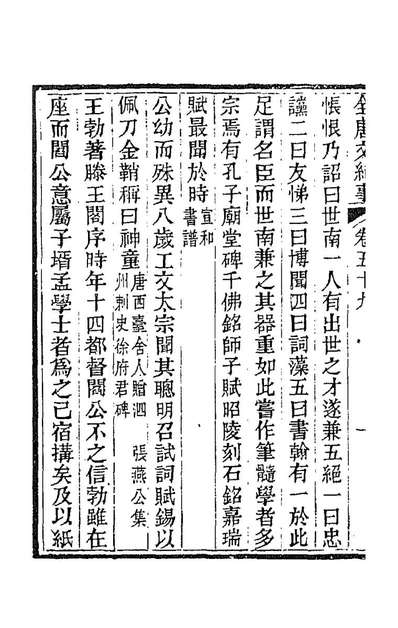 全唐文紀事 卷五十九 一
悵恨乃詔曰世南一人有出世之才遂兼五絕一曰忠
讜二曰友悌三曰博聞四曰詞藻五曰書翰有一於此
足謂名臣而世南兼之其器重如此嘗作筆髓學者多
宗焉有孔子廟堂碑千佛銘師子賦昭陵刻石銘嘉瑞
賦最聞於時 宣和書譜
公幼而殊異八歲工文太宗聞其聰明召試詞賦錫以
佩刀金鞘稱曰神童 唐西臺舍人贈泗州刺史徐府君碑 張燕公集
王勃著滕王閣序時年十四都督閻公不之信勃雖在
座而閻公意屬子壻孟學士者爲之已宿搆矣及以紙